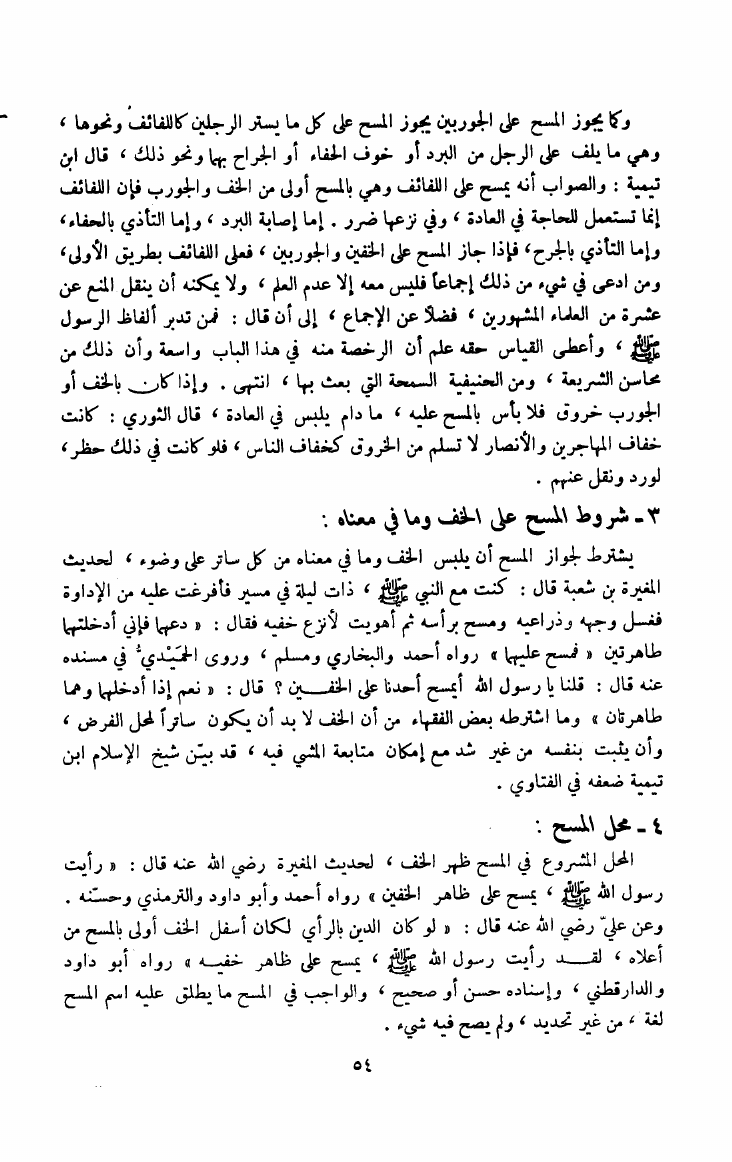 وكما يجوز المسح على الجوربين يجوز المسح على كل ما يستر الرجلين كاللفائف ونحوها ،
وهي ما يلف على الرجل من البرد أو خوف الحفاء أو الجراح بها ونحو ذلك ، قال ابن
تيمية : والصواب أنه يمسح على اللفائف وهي بالمسح أولى من الخف والجورب فإن اللفائف
إنما تستعمل للحاجة في العادة ، وفي نزعها ضرر . إما إصابة البرد ، وإما التأذي بالحفاء،
وإما التأذي بالجرح، فإذا جاز المسح على الخفين والجوربين ، فعلى اللفائف بطريق الأولى،
ومن ادعى في شيء من ذلك إجماعاً فليس معه إلا عدم العلم ، ولا يمكنه أن ينقل المنع عن
عشرة من العلماء المشهورين ، فضلاً عن الإجماع ، إلى أن قال : فمن تدبر ألفاظ الرسول
ﷺ ، وأعطى القياس حقه علم أن الرخصة منه في هذا الباب واسعة وأن ذلك من
محاسن الشريعة ، ومن الحنيفية السمحة التي بعث بها ، انتهى . وإذا كان بالخف أو
الجورب خروق فلا بأس بالمسح عليه ، ما دام يلبس في العادة ، قال الثوري : كانت
خفاف المهاجرين والأنصار لا تسلم من الخروق كخفاف الناس ، فلو كانت في ذلك حظر،
لورد ونقل عنهم .
٣ - شروط المسح على الخف وما في معناه :
يشترط لجواز المسح أن يلبس الخف وما في معناه من كل ساتر على وضوء ، لحديث
المغيرة بن شعبة قال : كنت مع النبي ﷺ ، ذات ليلة في مسير فأفرغت عليه من الإداوة
فغسل وجهه وذراعيه ومسح برأسه ثم أهويت لأنزع خفيه فقال : « دعها فإني أدخلتها
طاهرتين « فمسح عليها » رواه أحمد والبخاري ومسلم ، وروى الحُمَيْديُّ في مسنده
عنه قال : قلنا يا رسول الله أيمسح أحدنا على الخفين ؟ قال : « نعم إذا أدخلها وهما
طاهرتان » وما اشترطه بعض الفقهاء من أن الخف لا بد أن يكون ساتراً لمحل الفرض ،
وأن يثبت بنفسه من غير شد مع إمكان متابعة المشي فيه ، قد بيّن شيخ الإسلام ابن
تيمية ضعفه في الفتاوي .
٤ - محل المسح :
المحل المشروع في المسح ظهر الخف ، لحديث المغيرة رضي الله عنه قال : « رأيت
رسول الله ﷺ ، يمسح على ظاهر الخفين » رواه أحمد وأبو داود والترمذي وحسّنه .
وعن عليّ رضي الله عنه قال : « لو كان الدين بالرأي لكان أسفل الخف أولى بالمسح من
أعلاه ، لقد رأيت رسول الله ﷺ ، يمسح على ظاهر خفيه » رواه أبو داود
والدارقطني ، وإسناده حسن أو صحيح ، والواجب في المسح ما يطلق عليه اسم المسح
لغة ، من غير تحديد ، ولم يصح فيه شيء .
٥٤